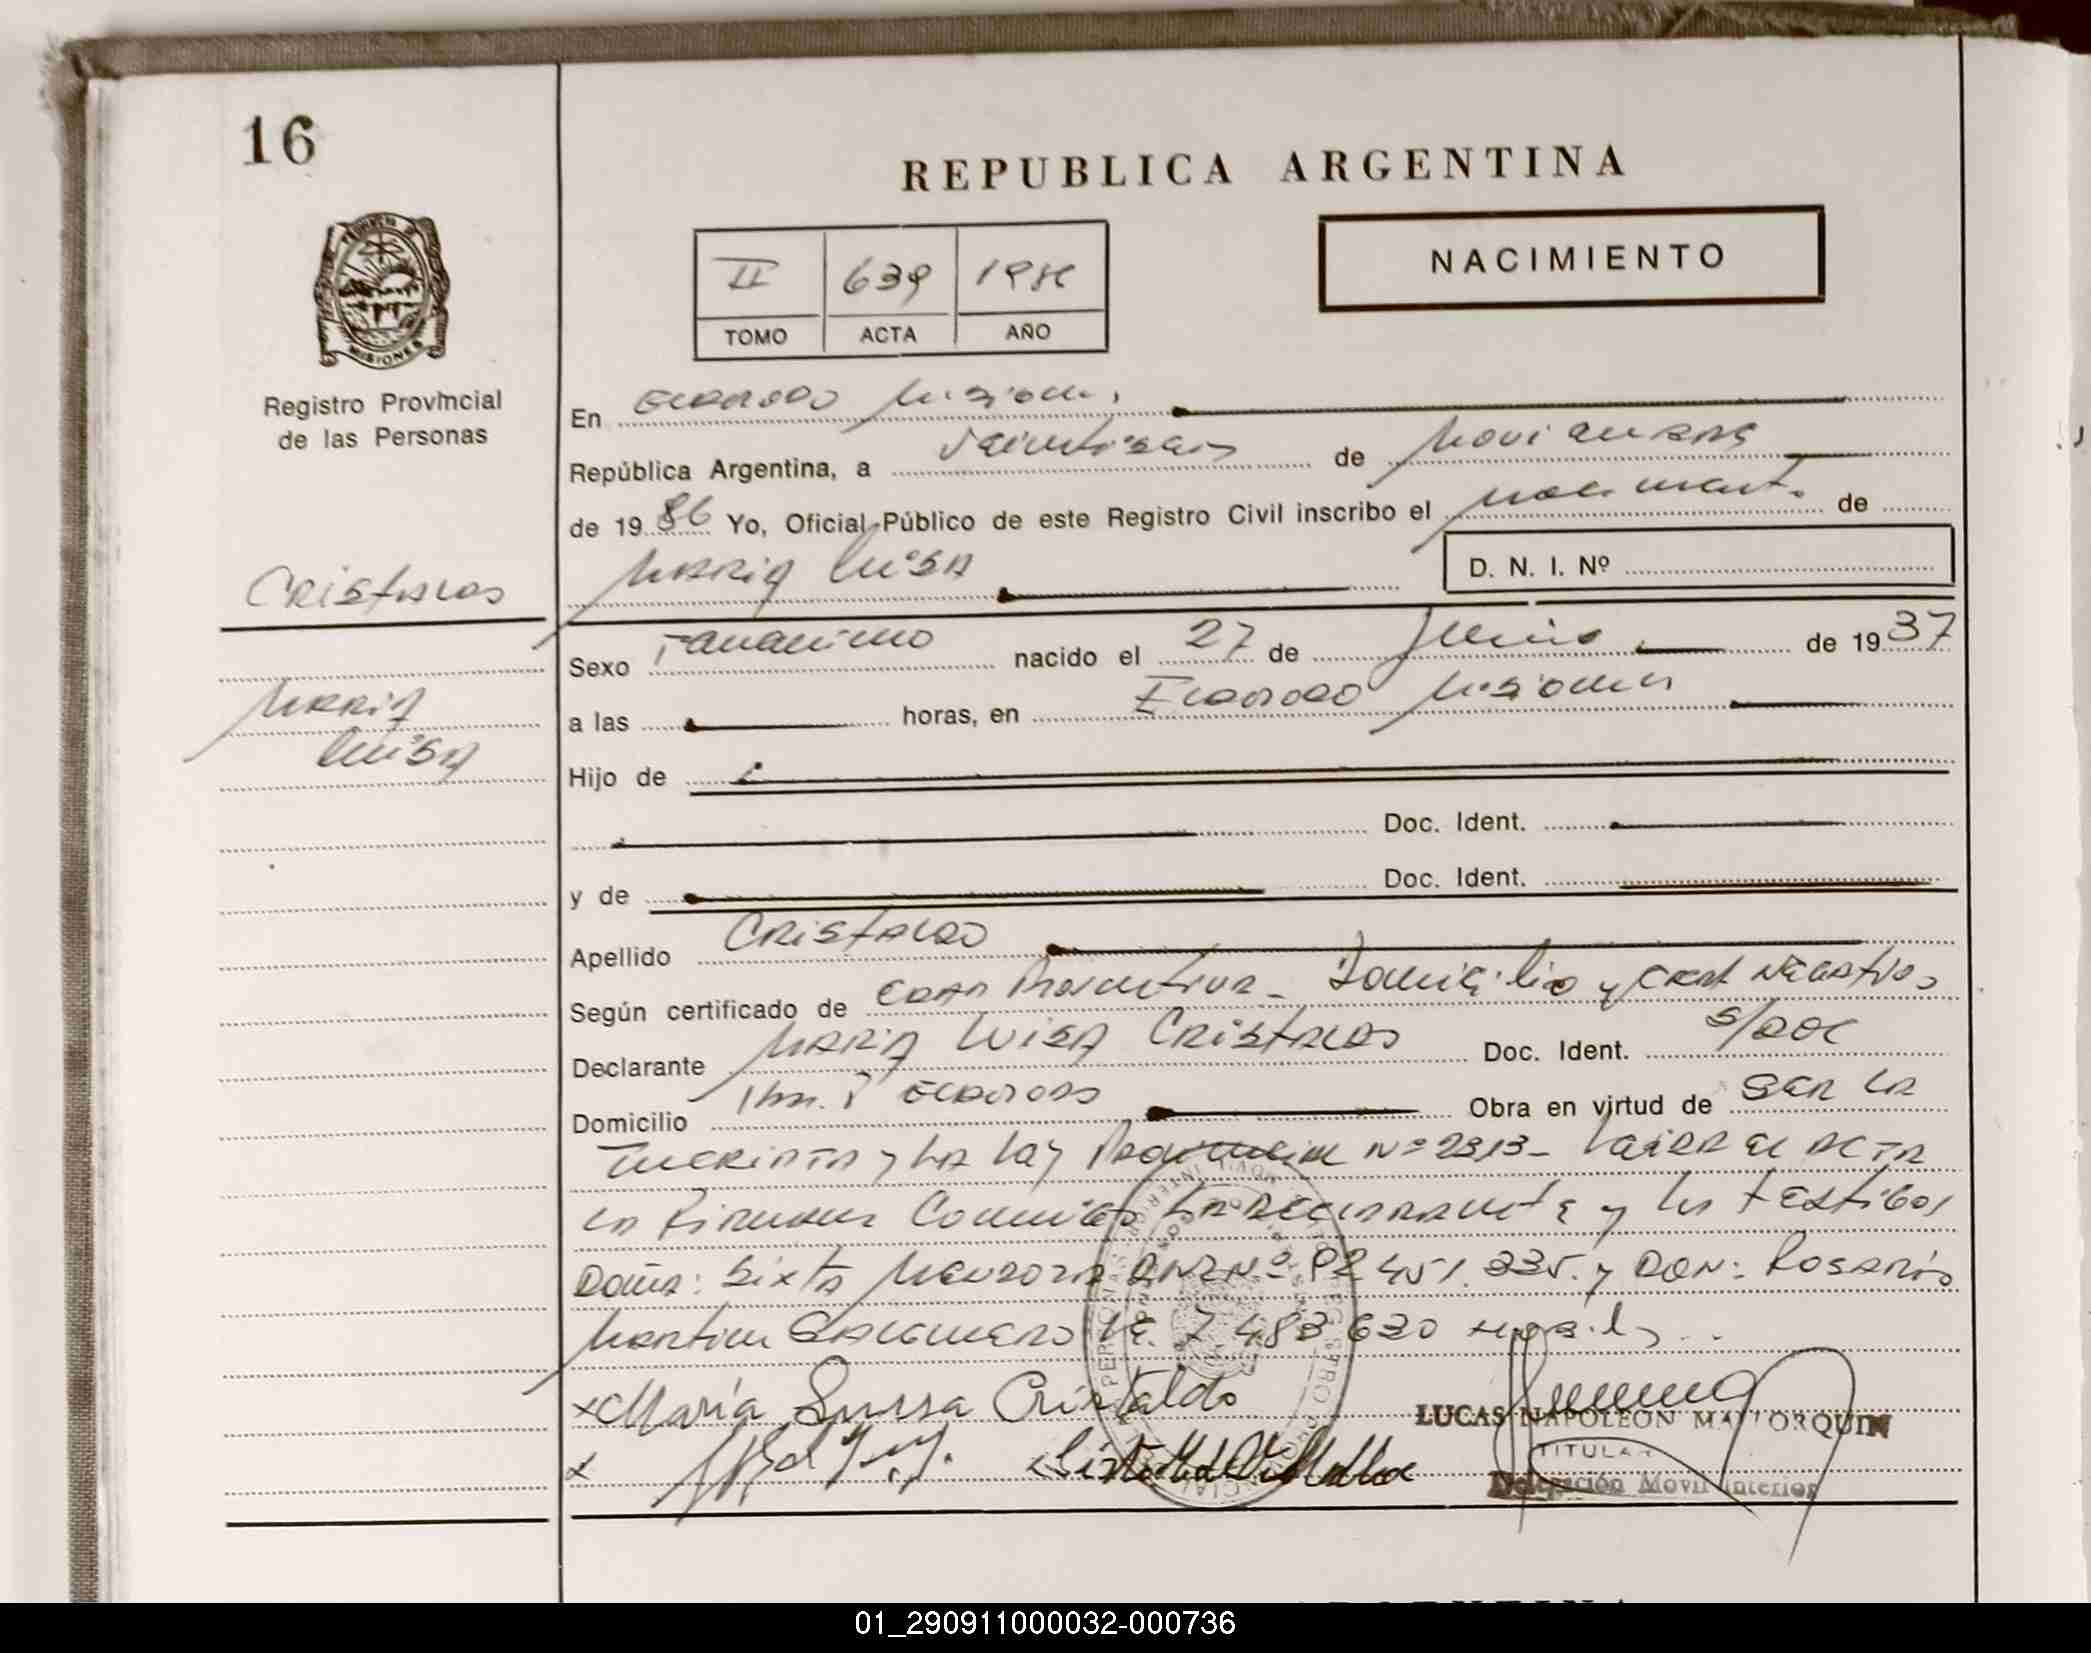 16
REPUBLICA ARGENTINA
NACIMIENTO
II 639 1986
TOMO ACTA AÑO
MISIONES
Registro Provincial
de las Personas
En Eldorado Misiones
República Argentina, a veintiseis de Noviembre
de 1986 Yo, Oficial Público de este Registro Civil inscribo el nacimiento de
Cristaldo
Maria Luisa
D. N. I. Nº
Sexo Femenino nacido el 27 de Junio de 1937
Maria
Luisa
a las horas, en Eldorado Misiones
Hijo de
Doc. Ident.
y de Doc. Ident.
Apellido Cristaldo
Según certificado de Domicilio y cert Negativo
Declarante Maria Luisa Cristaldo Doc. Ident. s/doc
Domicilio Km. Eldorado Obra en virtud de ser la
y la ley Provincial Nº 2313- Leida el acta
la firman conmigo la declarante y los testigos
Doña: Sixta DNI Nº 92 451.335. y DON: Rosario
Martin 7 483 630
x Maria Luisa Cristaldo
x
LUCAS NAPOLEON MALLORQUIN
TITULAR
Delegación Movil Interior
01_290911000032-000736